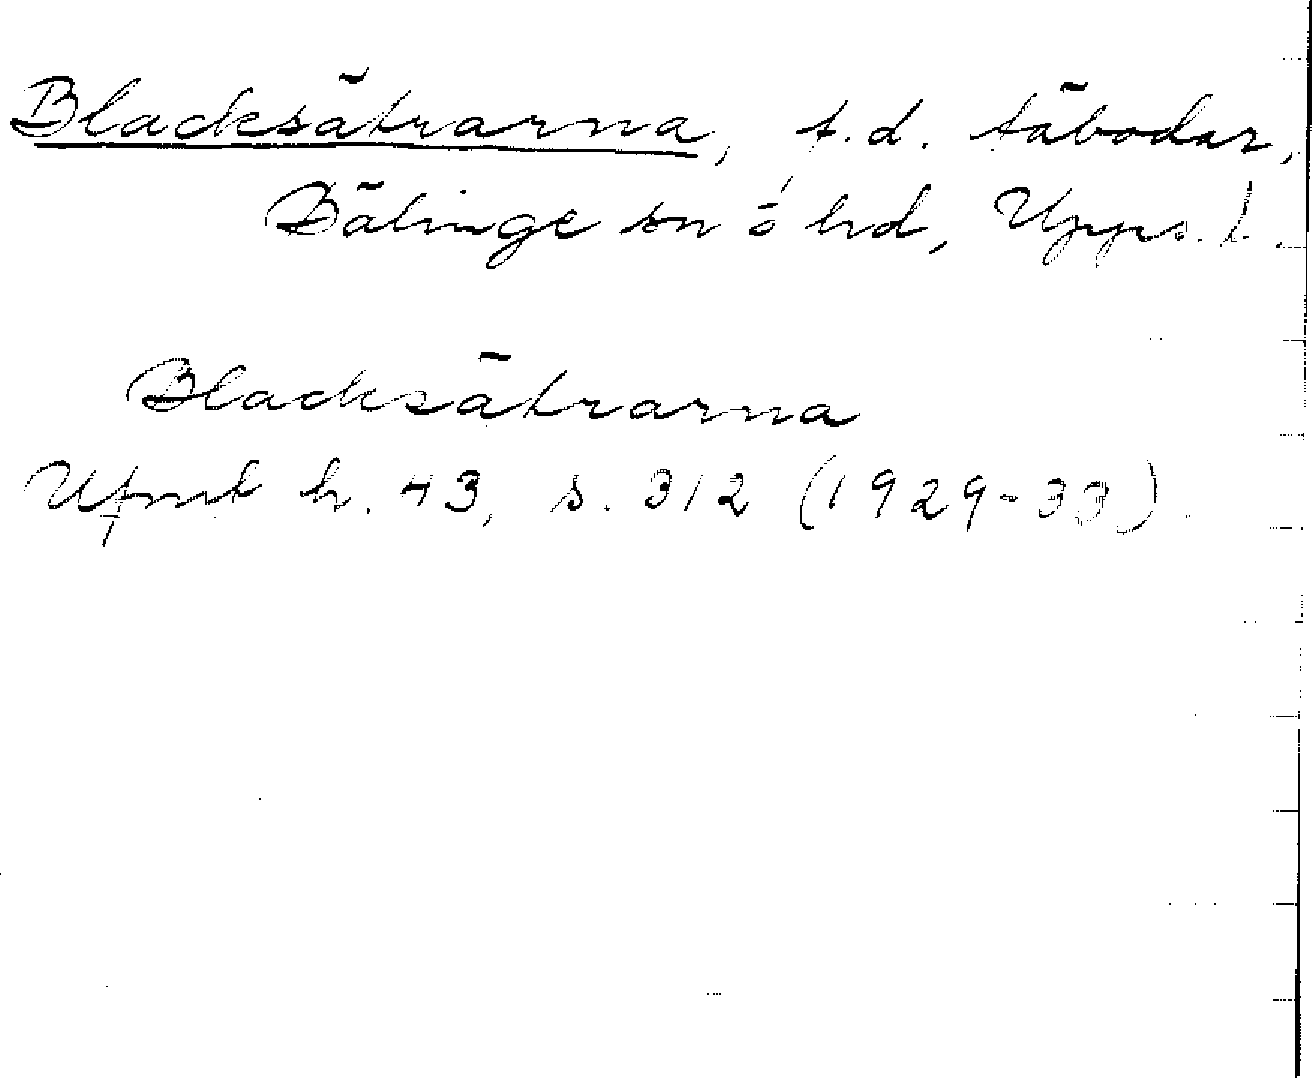 Blacksätrarna, f.d. fäbodar,
Bälinge sn o hd, Upps. l.
Blacksätrarna
Ufmt h. 43, s. 312 (1929-33).